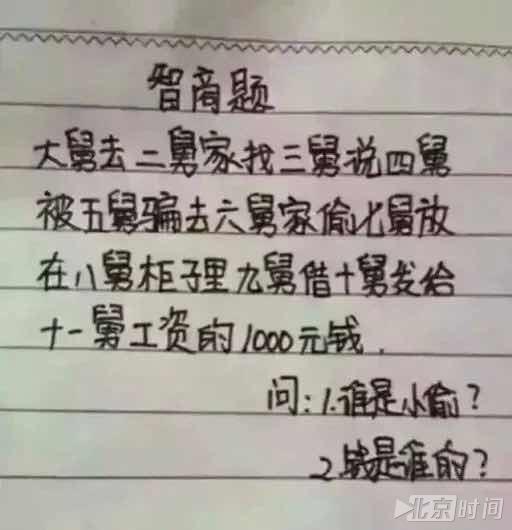 智商题
大舅去二舅家找三舅说四舅
被五舅骗去六舅家偷七舅放
在八舅柜子里九舅借十舅发给
十一舅工资的1000元钱.
问:1.谁是小偷?
2.钱是谁的?
北京时间